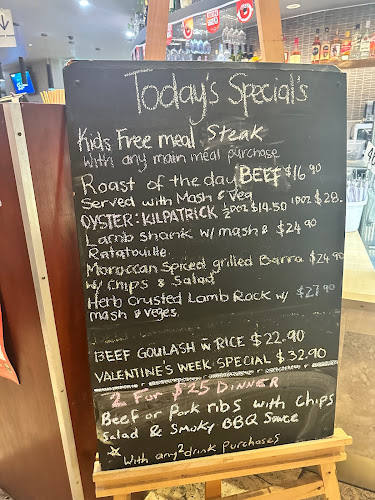 Today's Special's
Kids Free meal, Steak
with any main meal purchase
Roast of the day BEEF $16.90
Served with Mash & Veg
OYSTER: KILPATRICK ½DOZ $19.50 1DOZ $28.
Lamb shank w/ mash & $24.90
Ratatouille
Moroccan Spiced grilled Barra $24.90
w/ Chips & Salad
Herb Crusted Lamb Rack w/ $27.90
mash & veges
BEEF GOULASH w RICE $22.90
VALENTINE'S WEEK SPECIAL $32.90
2 For $25 DINNER
Beef or Pork ribs with Chips
Salad & Smoky BBQ Sauce
With any 2 drink Purchases